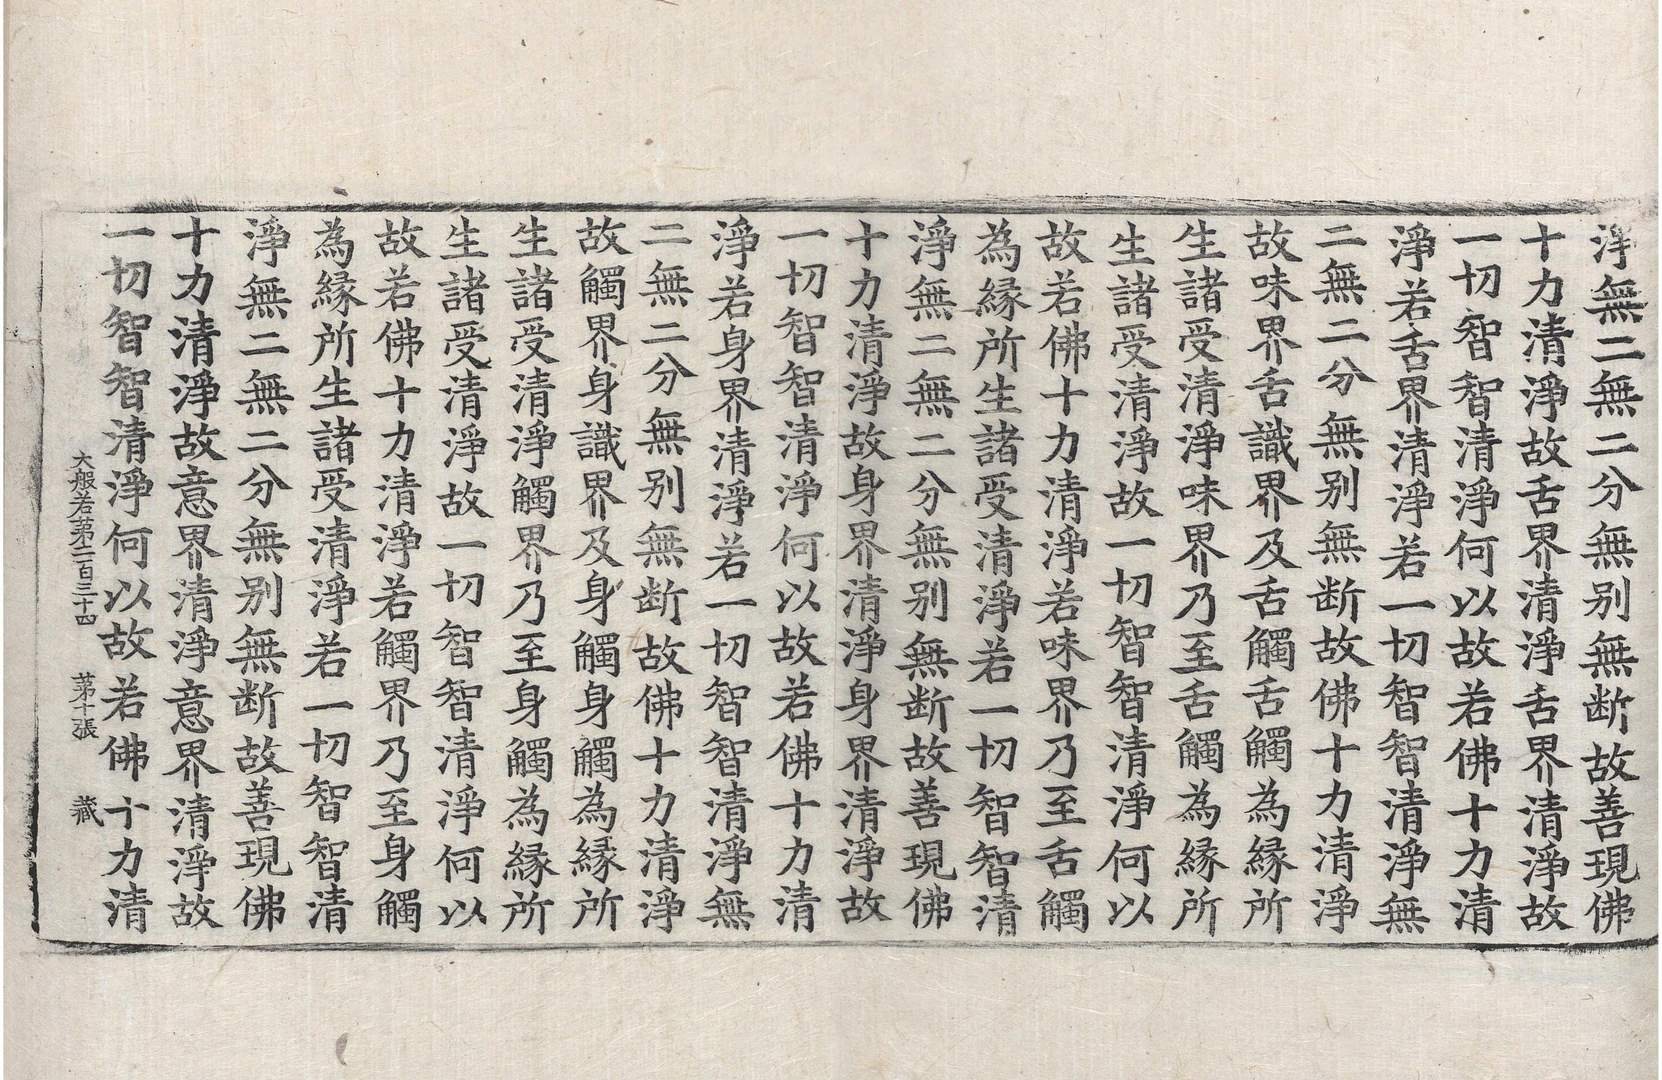 淨無二無二分無別無斷故善現佛
十力清淨故舌界清淨舌界清淨故
一切智智清淨何以故若佛十力清
淨若舌界清淨若一切智智清淨無
二無二分無別無斷故佛十力清淨
故味界舌識界及舌觸舌觸為緣所
生諸受清淨味界乃至舌觸為緣所
生諸受清淨故一切智智清淨何以
故若佛十力清淨若味界乃至舌觸
為緣所生諸受清淨若一切智智清
淨無二無二分無別無斷故善現佛
十力清淨故身界清淨身界清淨故
一切智智清淨何以故若佛十力清
淨若身界清淨若一切智智清淨無
二無二分無別無斷故佛十力清淨
故觸界身識界及身觸身觸為緣所
生諸受清淨觸界乃至身觸為緣所
生諸受清淨故一切智智清淨何以
故若佛十力清淨若觸界乃至身觸
為緣所生諸受清淨若一切智智清
淨無二無二分無別無斷故善現佛
十力清淨故意界清淨意界清淨故
一切智智清淨何以故若佛十力清
大般若第二百三十四 第十張 藏